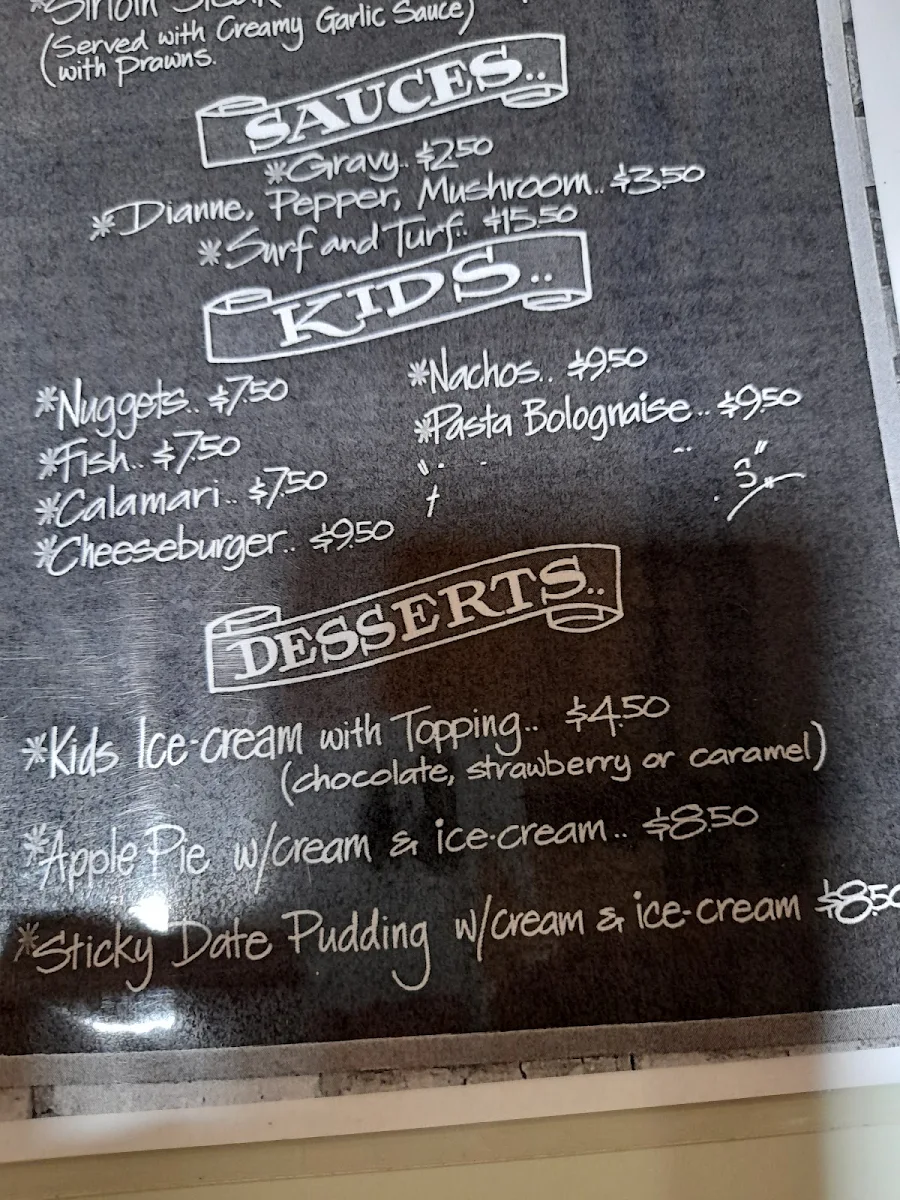 *Sirloin Steak
(Served with Creamy Garlic Sauce)
(with Prawns.
SAUCES..
*Gravy.. $2.50
*Dianne, Pepper, Mushroom.. $3.50
*Surf and Turf.. $15.50
KIDS..
*Nuggets.. $7.50
*Fish.. $7.50
*Calamari.. $7.50
*Cheeseburger.. $9.50
*Nachos.. $9.50
*Pasta Bolognaise.. $9.50
DESSERTS..
*Kids Ice-cream with Topping.. $4.50
(chocolate, strawberry or caramel)
*Apple Pie w/cream & ice-cream.. $8.50
*Sticky Date Pudding w/cream & ice-cream $8.50